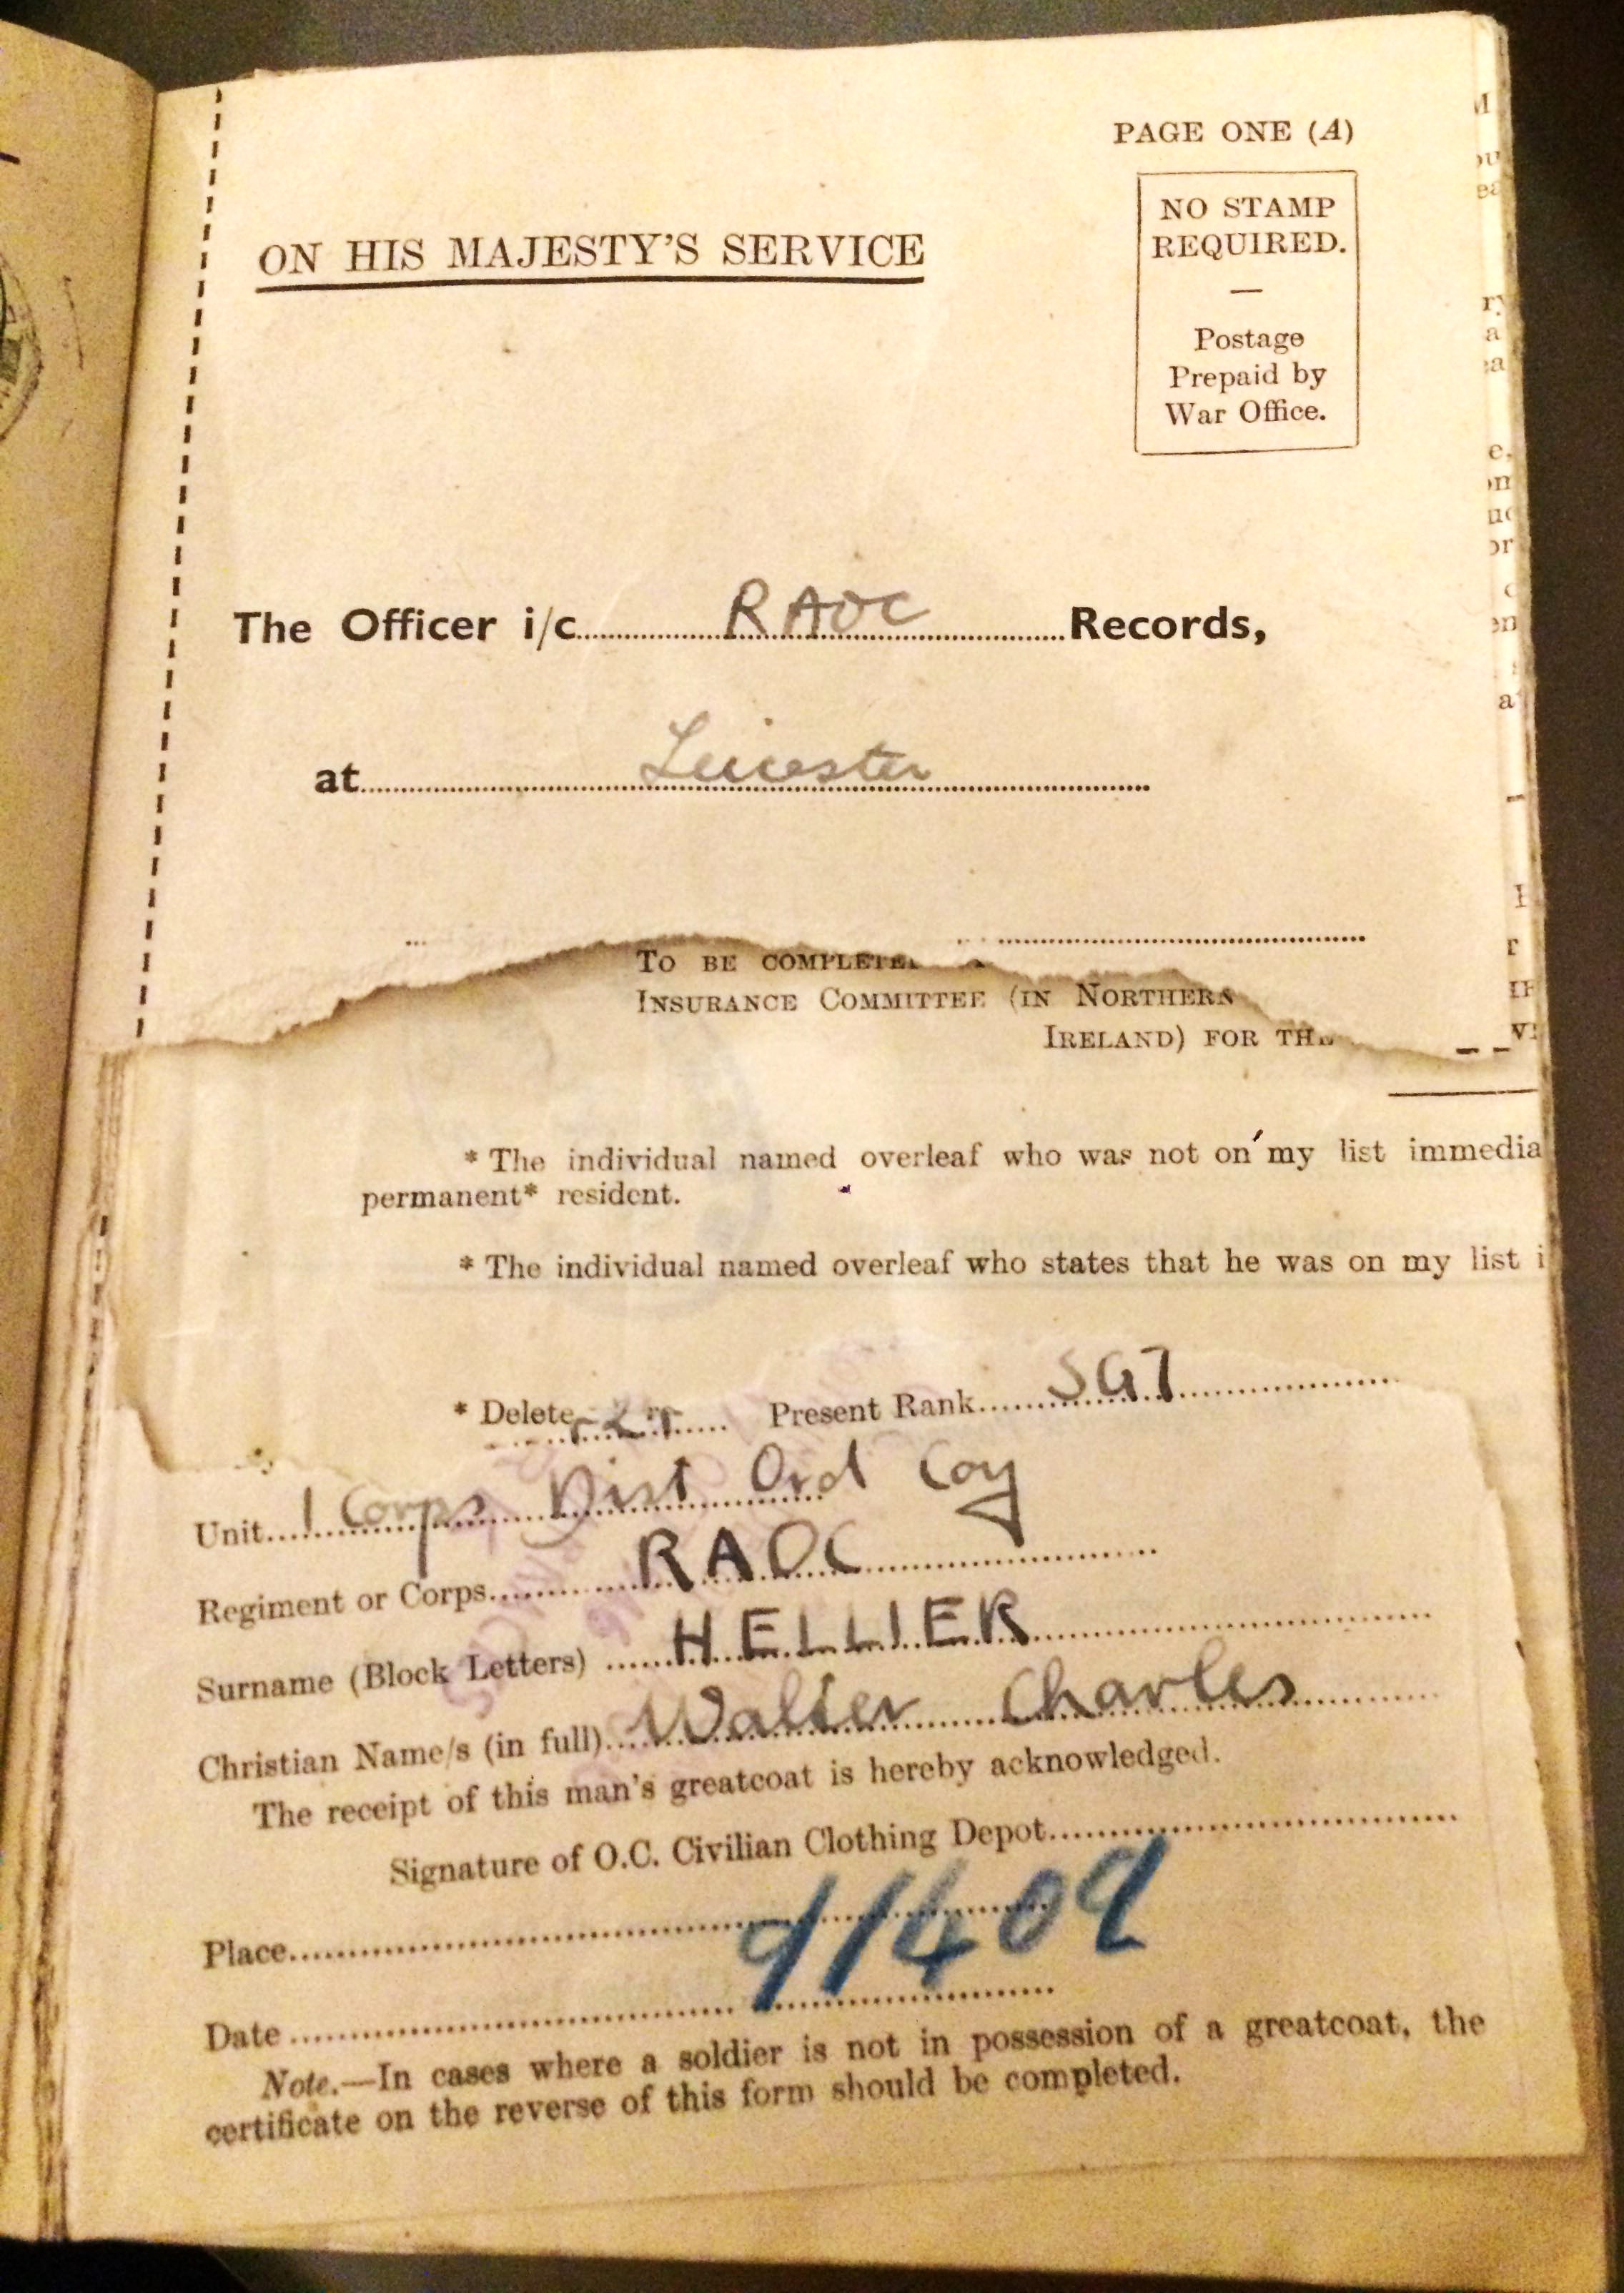 PAGE ONE (A)
NO STAMP
REQUIRED.
—
Postage
Prepaid by
War Office.
ON HIS MAJESTY'S SERVICE
The Officer i/c RAOC Records,
at Leicester
TO BE COMPLETE
INSURANCE COMMITTEE (IN NORTHERN
IRELAND) FOR THE
* The individual named overleaf who was not on my list immedia
permanent* resident.
* The individual named overleaf who states that he was on my list i
* Delete
Present Rank SGT
Unit 1 Corps Dist Ord Coy
Regiment or Corps RAOC
Surname (Block Letters) HELLIER
Christian Name/s (in full) Walter Charles
The receipt of this man's greatcoat is hereby acknowledged.
Signature of O.C. Civilian Clothing Depot
Place
91409
Date
Note.—In cases where a soldier is not in possession of a greatcoat, the
certificate on the reverse of this form should be completed.